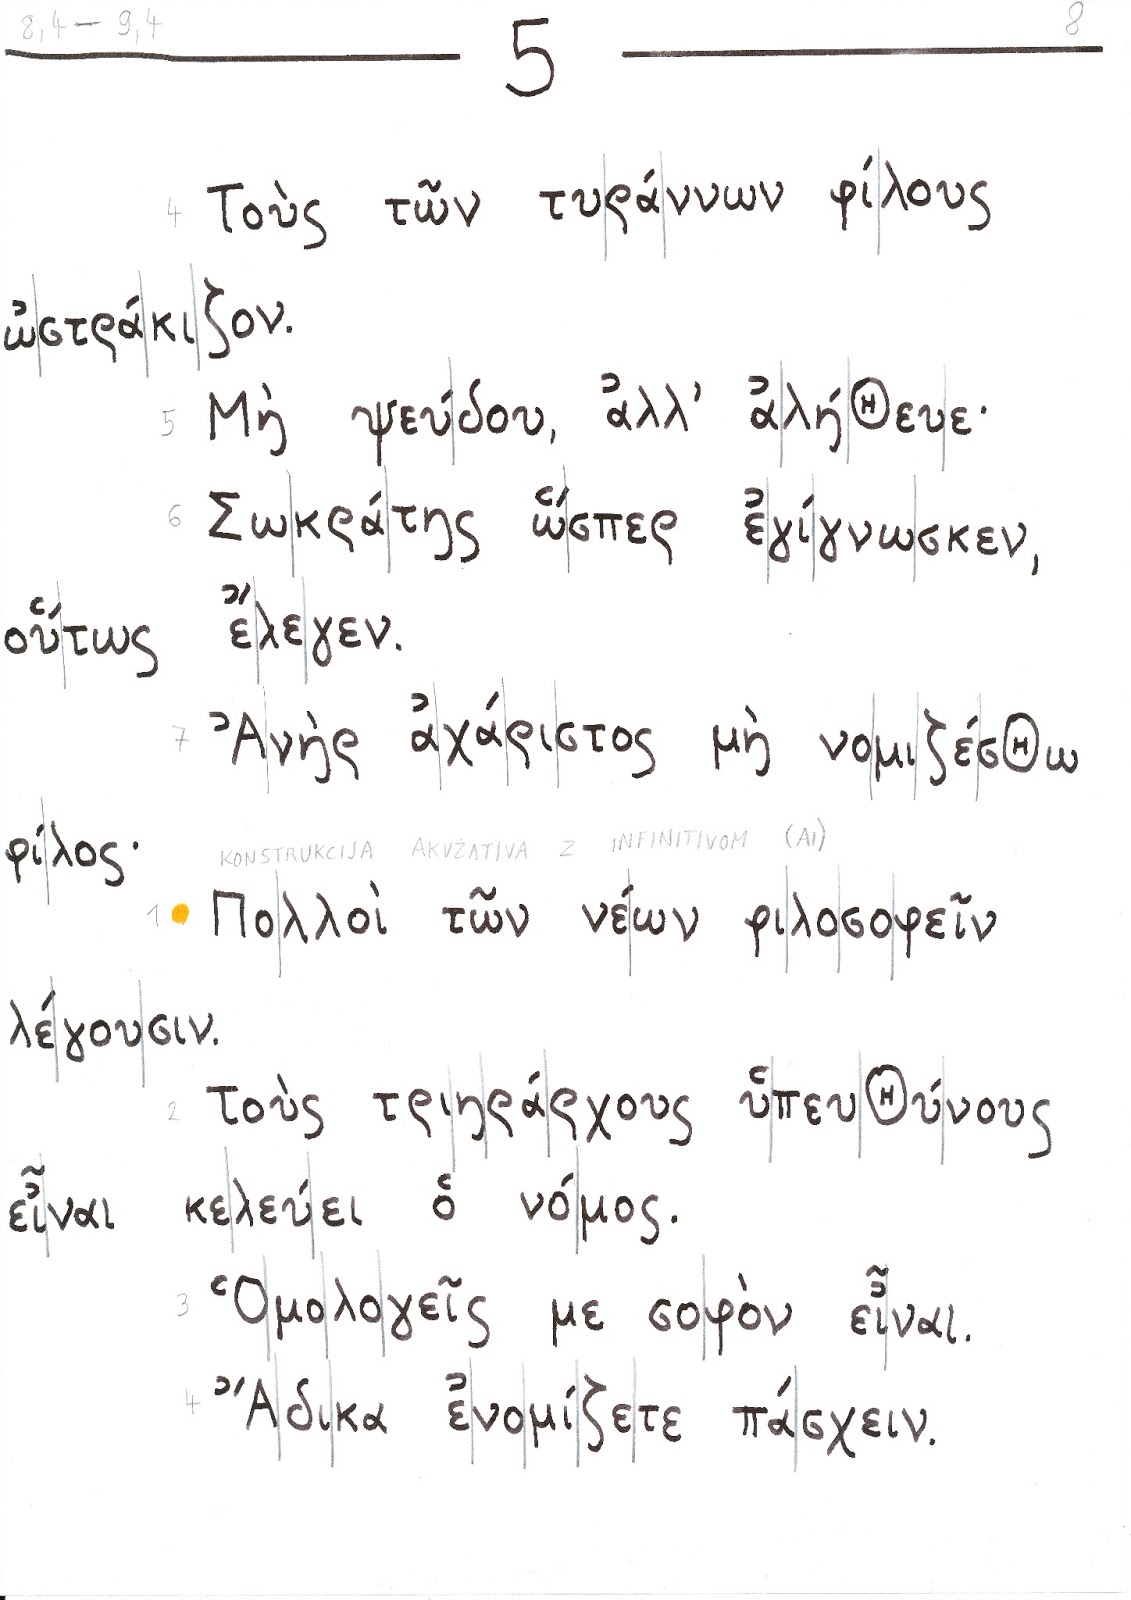 8,4 – 9,4 5 8
4 Τοὺς τῶν τυράννων φίλους
ὠστράκιζον.
5 Μὴ ψεύδου, ἀλλ' ἀλήθευε·
6 Σωκράτης ὥσπερ ἐγίγνωσκεν,
οὕτως ἔλεγεν.
7 Ἀνὴρ ἀχάριστος μὴ νομιζέσθω
φίλος·
KONSTRUKCIJA AKUŽATIVA Z INFINITIVOM (AI)
1 Πολλοὶ τῶν νέων φιλοσοφεῖν
λέγουσιν.
2 Τοὺς τριηράρχους ὑπευθύνους
εἶναι κελεύει ὁ νόμος.
3 Ὁμολογεῖς με σοφὸν εἶναι.
4 Ἄδικα ἐνομίζετε πάσχειν.